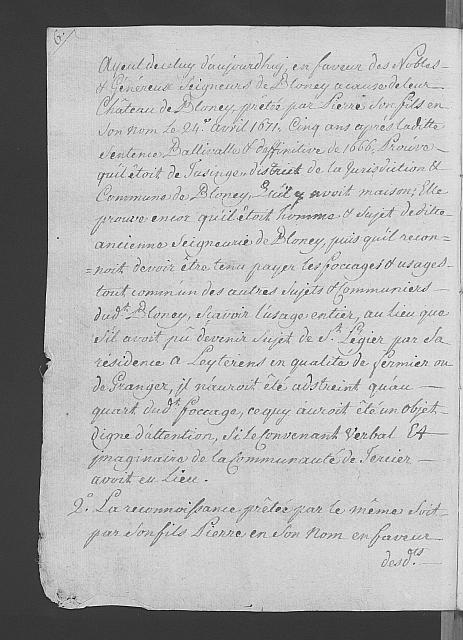 6.
Ayeul de celuy d'aujourd'huy, en faveur des Nobles
& Généreux Seigneurs de Bloney a cause de leur
Château de Bloney, prêtée par Pierre son fils en
son nom le 24.e avril 1671. Cinq ans après la ditte
Sentence Ballivalle & deffinitive de 1666. Prouve
qu'il étoit de district de la Jurisdiction &
Commune de Bloney, qu'il y avoit maison; Elle
prouve encor qu'il étoit homme & Sujet de ditte
ancienne Seigneurie de Bloney, puis qu'il recon-
=noit devoir être tenu payer les foccages & usages
tout comm'un des autres Sujets & Communiers
dud.t Bloney, scavoir l'usage entier, au lieu que
s'il avoit pû devenir Sujet de S.t Légier par sa
residence a Leyterens en qualité de fermier ou
de Granger, il n'auroit été adstreint qu'au
quart dud.t foccage, ce quy auroit été un objet
digne d'attention, si le Convenant Verbal Et
imaginaire de la Communauté de Tercier
avoit eu Lieu.
2.o La reconnoissance prêtée par le même soit
par son fils Pierre en son Nom en faveur
desd.ts